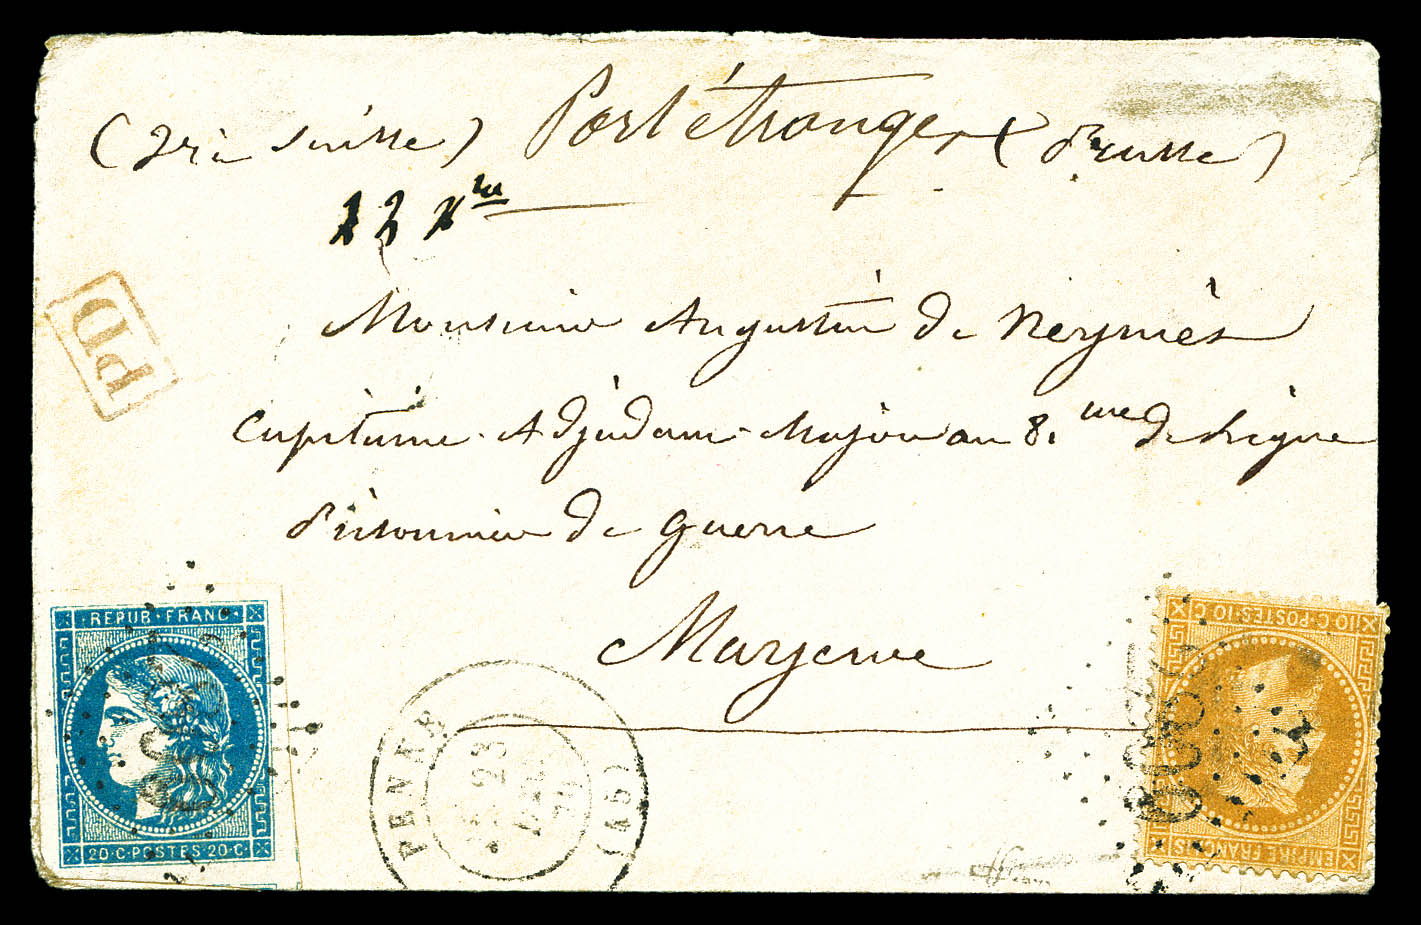 (Via Suisse) Port étranger (Prusse)
PD
Monsieur Augustin de Neymès
Capitaine Adjudant-Major au 8.me de Ligne
Prisonnier de Guerre
Mayence
REPUB·FRANC·
20·C·POSTES·20·C·
23
(45)
10·C·POSTES·10·C
EMPIRE FRANÇAIS